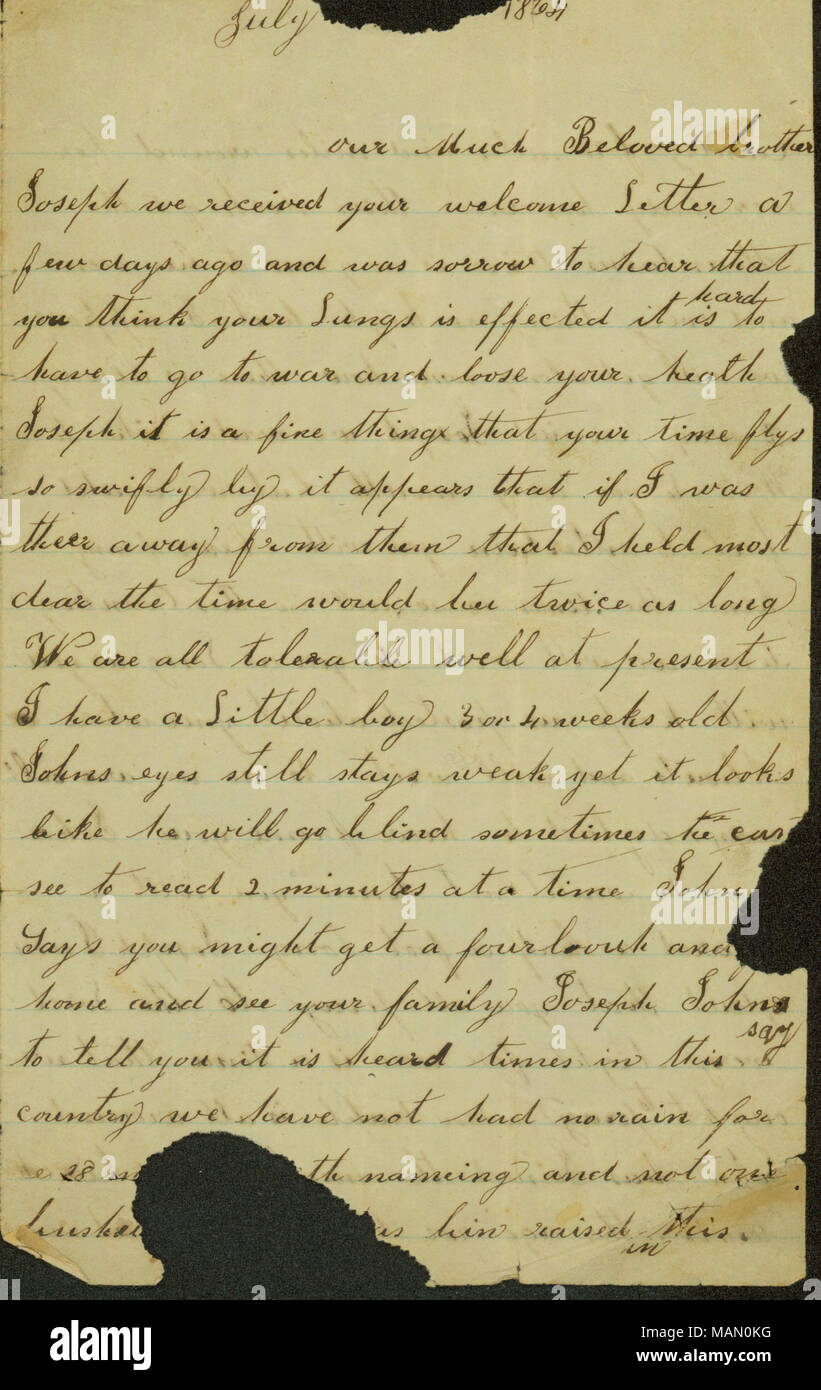 July 1864
our Much Beloved brother
Joseph we received your welcome Letter a
few days ago and was sorrow to hear that
you think your Lungs is effected it is hard to
have to go to war and loose your heath
Joseph it is a fine thing that your time flys
so swifly by it appears that if I was
theer away from them that I held most
dear the time would bee twice as long
We are all tolerable well at present
I have a Little boy 3 or 4 weeks old
Johns eyes still stays weak yet it looks
like he will go blind sometimes he cant
see to read 2 minutes at a time John
Says you might get a fourloouh and
home and see your family Joseph John say
to tell you it is heard times in this
country we have not had no rain for
28 th nameing and not one
bushel as bin raised in this
alamy stock photo
MAN0KG
www.alamy.com